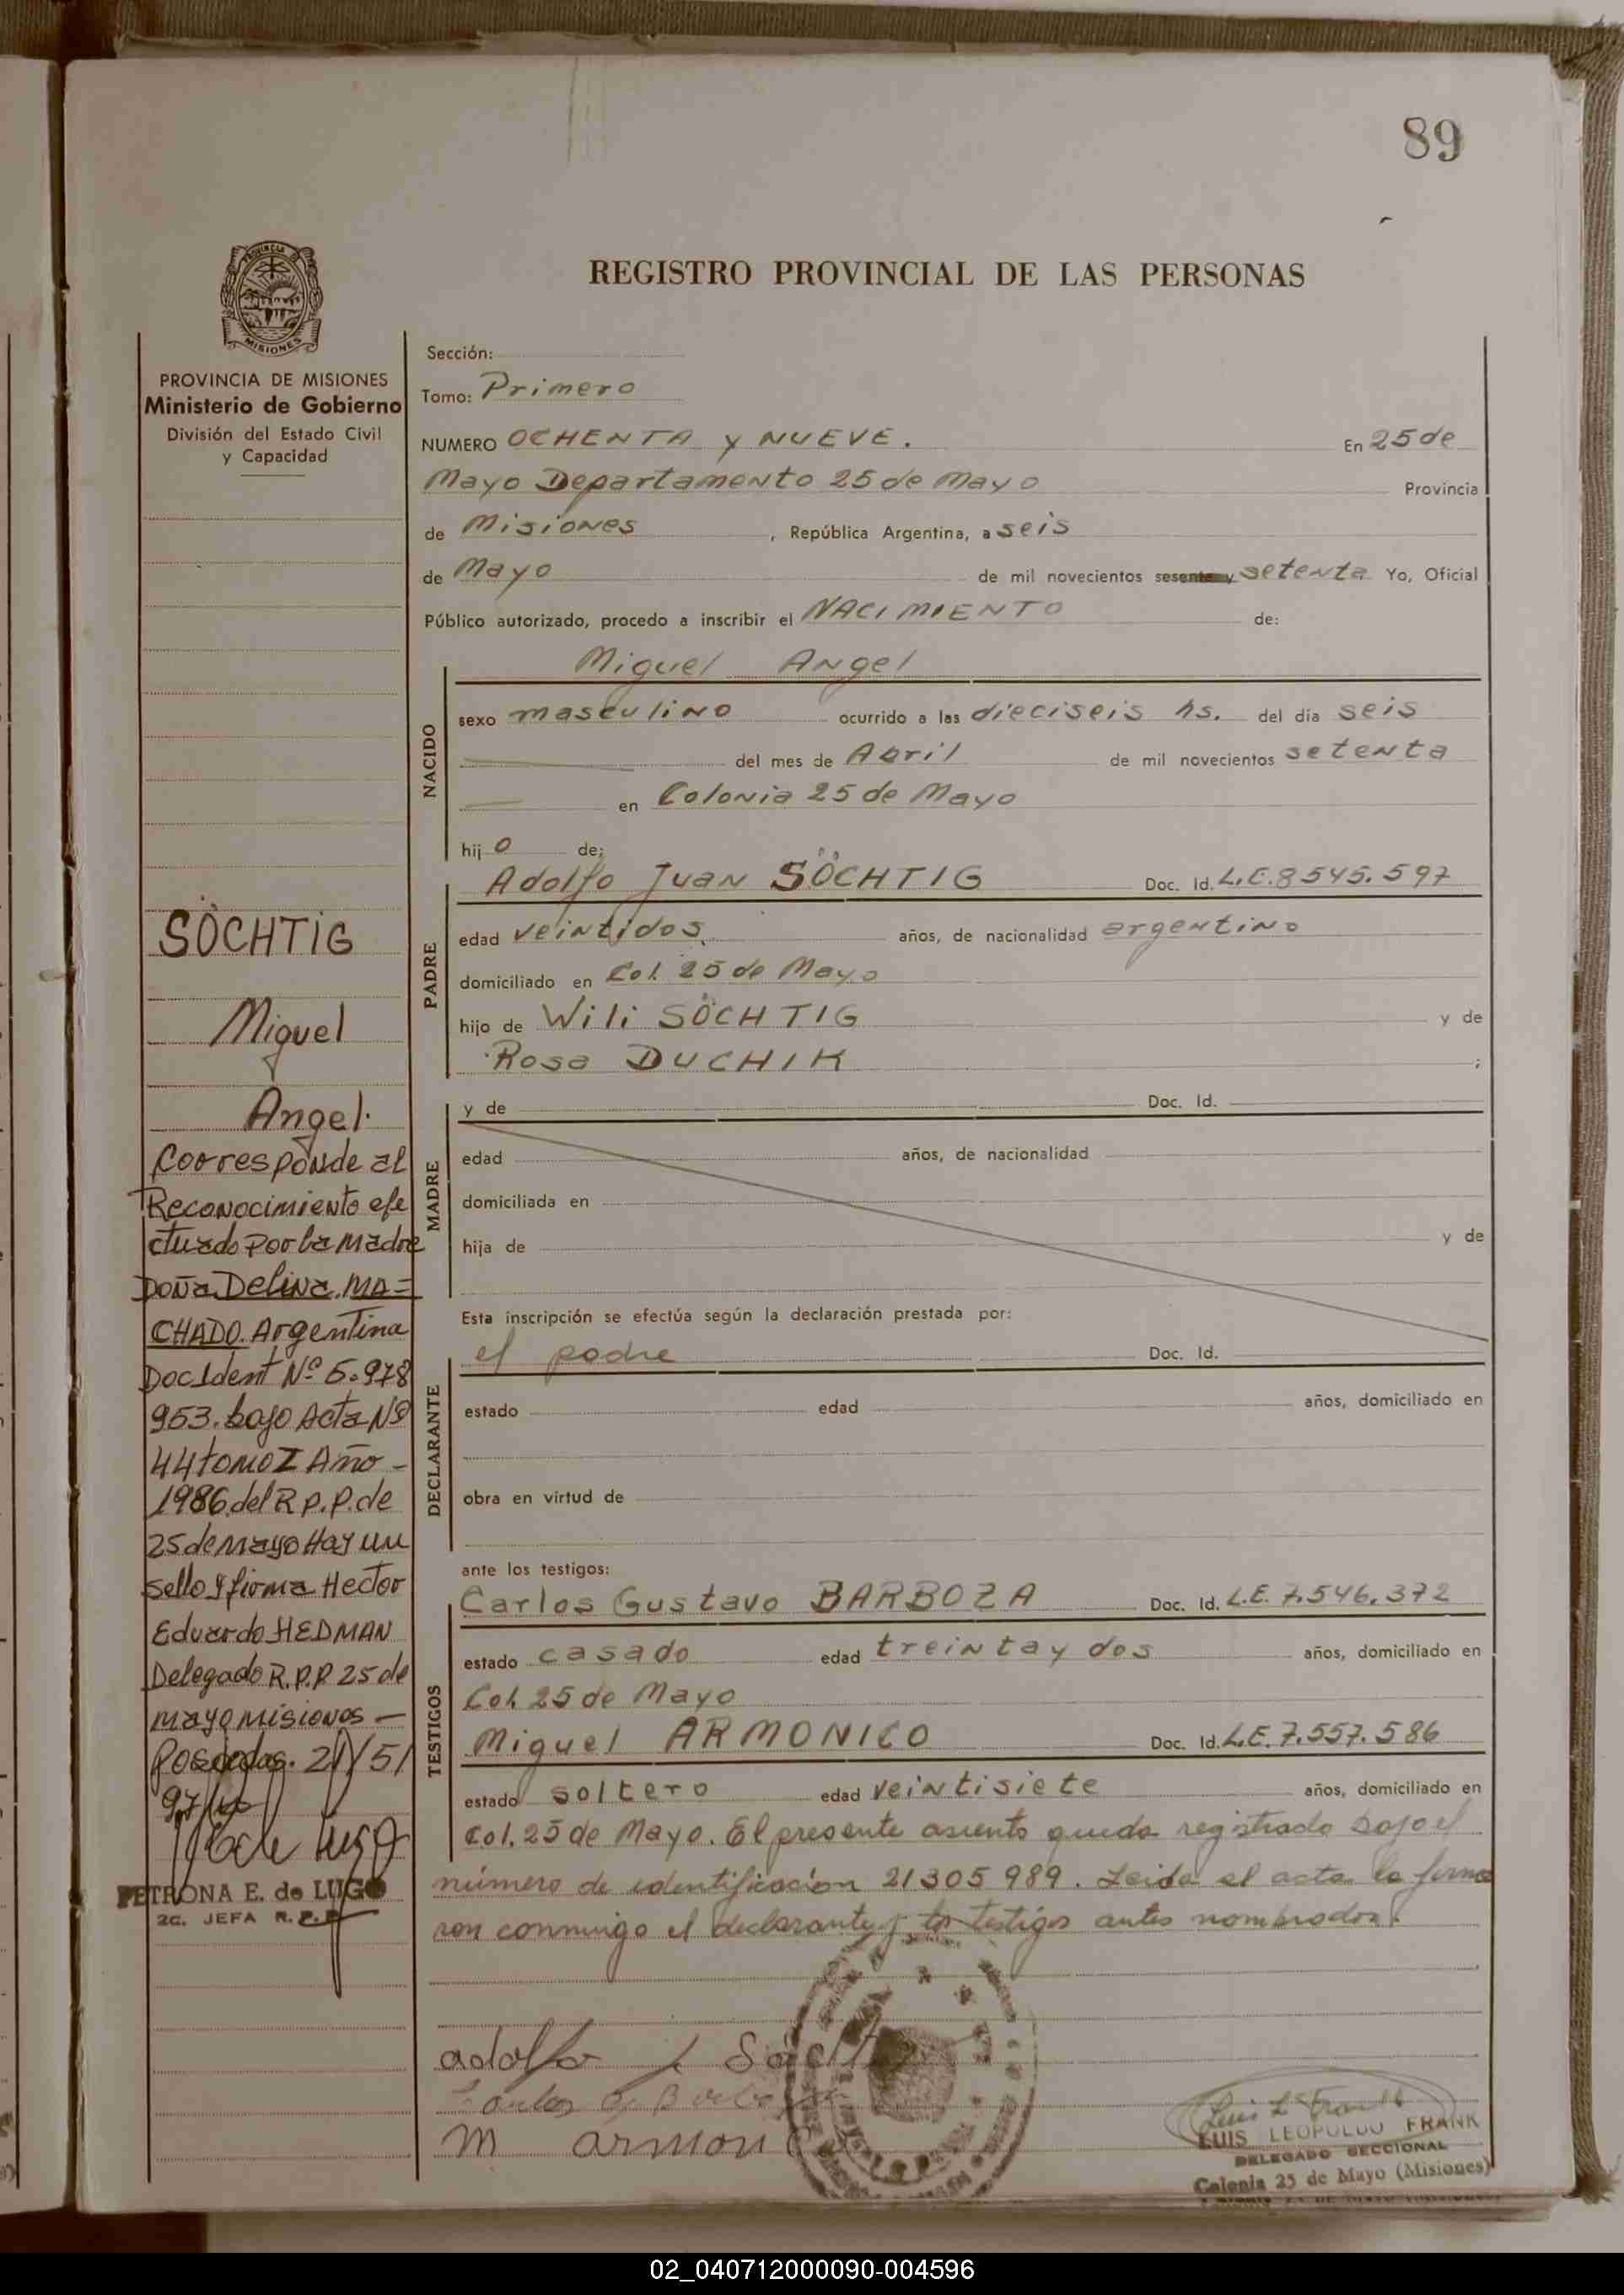 89
PROVINCIA DE
MISIONES
REGISTRO PROVINCIAL DE LAS PERSONAS
PROVINCIA DE MISIONES
Ministerio de Gobierno
División del Estado Civil
y Capacidad
SÖCHTIG
Miguel
Angel.
Corresponde al
Reconocimiento efe
ctuado por la madre
Doña Delina MA=
CHADO. Argentina
Doc Ident Nº 5.978
953. bajo Acta Nº
44 tomo I Año -
1986 del R.P.P. de
25 de mayo Hay un
sello y firma Hector
Eduardo HEDMAN
Delegado R.P.P. 25 de
mayo misiones -
Posadas. 21/5/
97
de Lugo
PETRONA E. de LUGO
2a. JEFA R.P.P.
Sección:
Tomo: Primero
NUMERO OCHENTA y NUEVE. En 25 de
Mayo Departamento 25 de Mayo Provincia
de Misiones , República Argentina, a seis
de Mayo de mil novecientos sesenta y setenta Yo, Oficial
Público autorizado, procedo a inscribir el NACIMIENTO de:
Miguel Angel
NACIDO
sexo masculino ocurrido a las dieciseis hs. del día seis
del mes de Abril de mil novecientos setenta
en Colonia 25 de Mayo
hij o de:
PADRE
Adolfo Juan SÖCHTIG Doc. Id. L.E. 8545.597
edad veintidos años, de nacionalidad argentino
domiciliado en Col. 25 de Mayo
hijo de Wili SÖCHTIG y de
Rosa DUCHIK ;
MADRE
y de Doc. Id.
edad años, de nacionalidad
domiciliada en
hija de y de
Esta inscripción se efectúa según la declaración prestada por:
DECLARANTE
el padre Doc. Id.
estado edad años, domiciliado en
obra en virtud de
ante los testigos:
TESTIGOS
Carlos Gustavo BARBOZA Doc. Id. L.E. 7.546.372
estado casado edad treinta y dos años, domiciliado en
Col. 25 de Mayo
Miguel ARMONICO Doc. Id. L.E. 7.557.586
estado soltero edad veintisiete años, domiciliado en
Col. 25 de Mayo. El presente asiento queda registrado bajo el
número de identificación 21305989. Leida el acta la firma
ron conmigo el declarante y los testigos antes nombrados.
adolfo J Söcht
Carlos G. Barboza
M armonico
Luis L. Frank
LUIS LEOPOLDO FRANK
DELEGADO SECCIONAL
Colonia 25 de Mayo (Misiones)
02_040712000090-004596